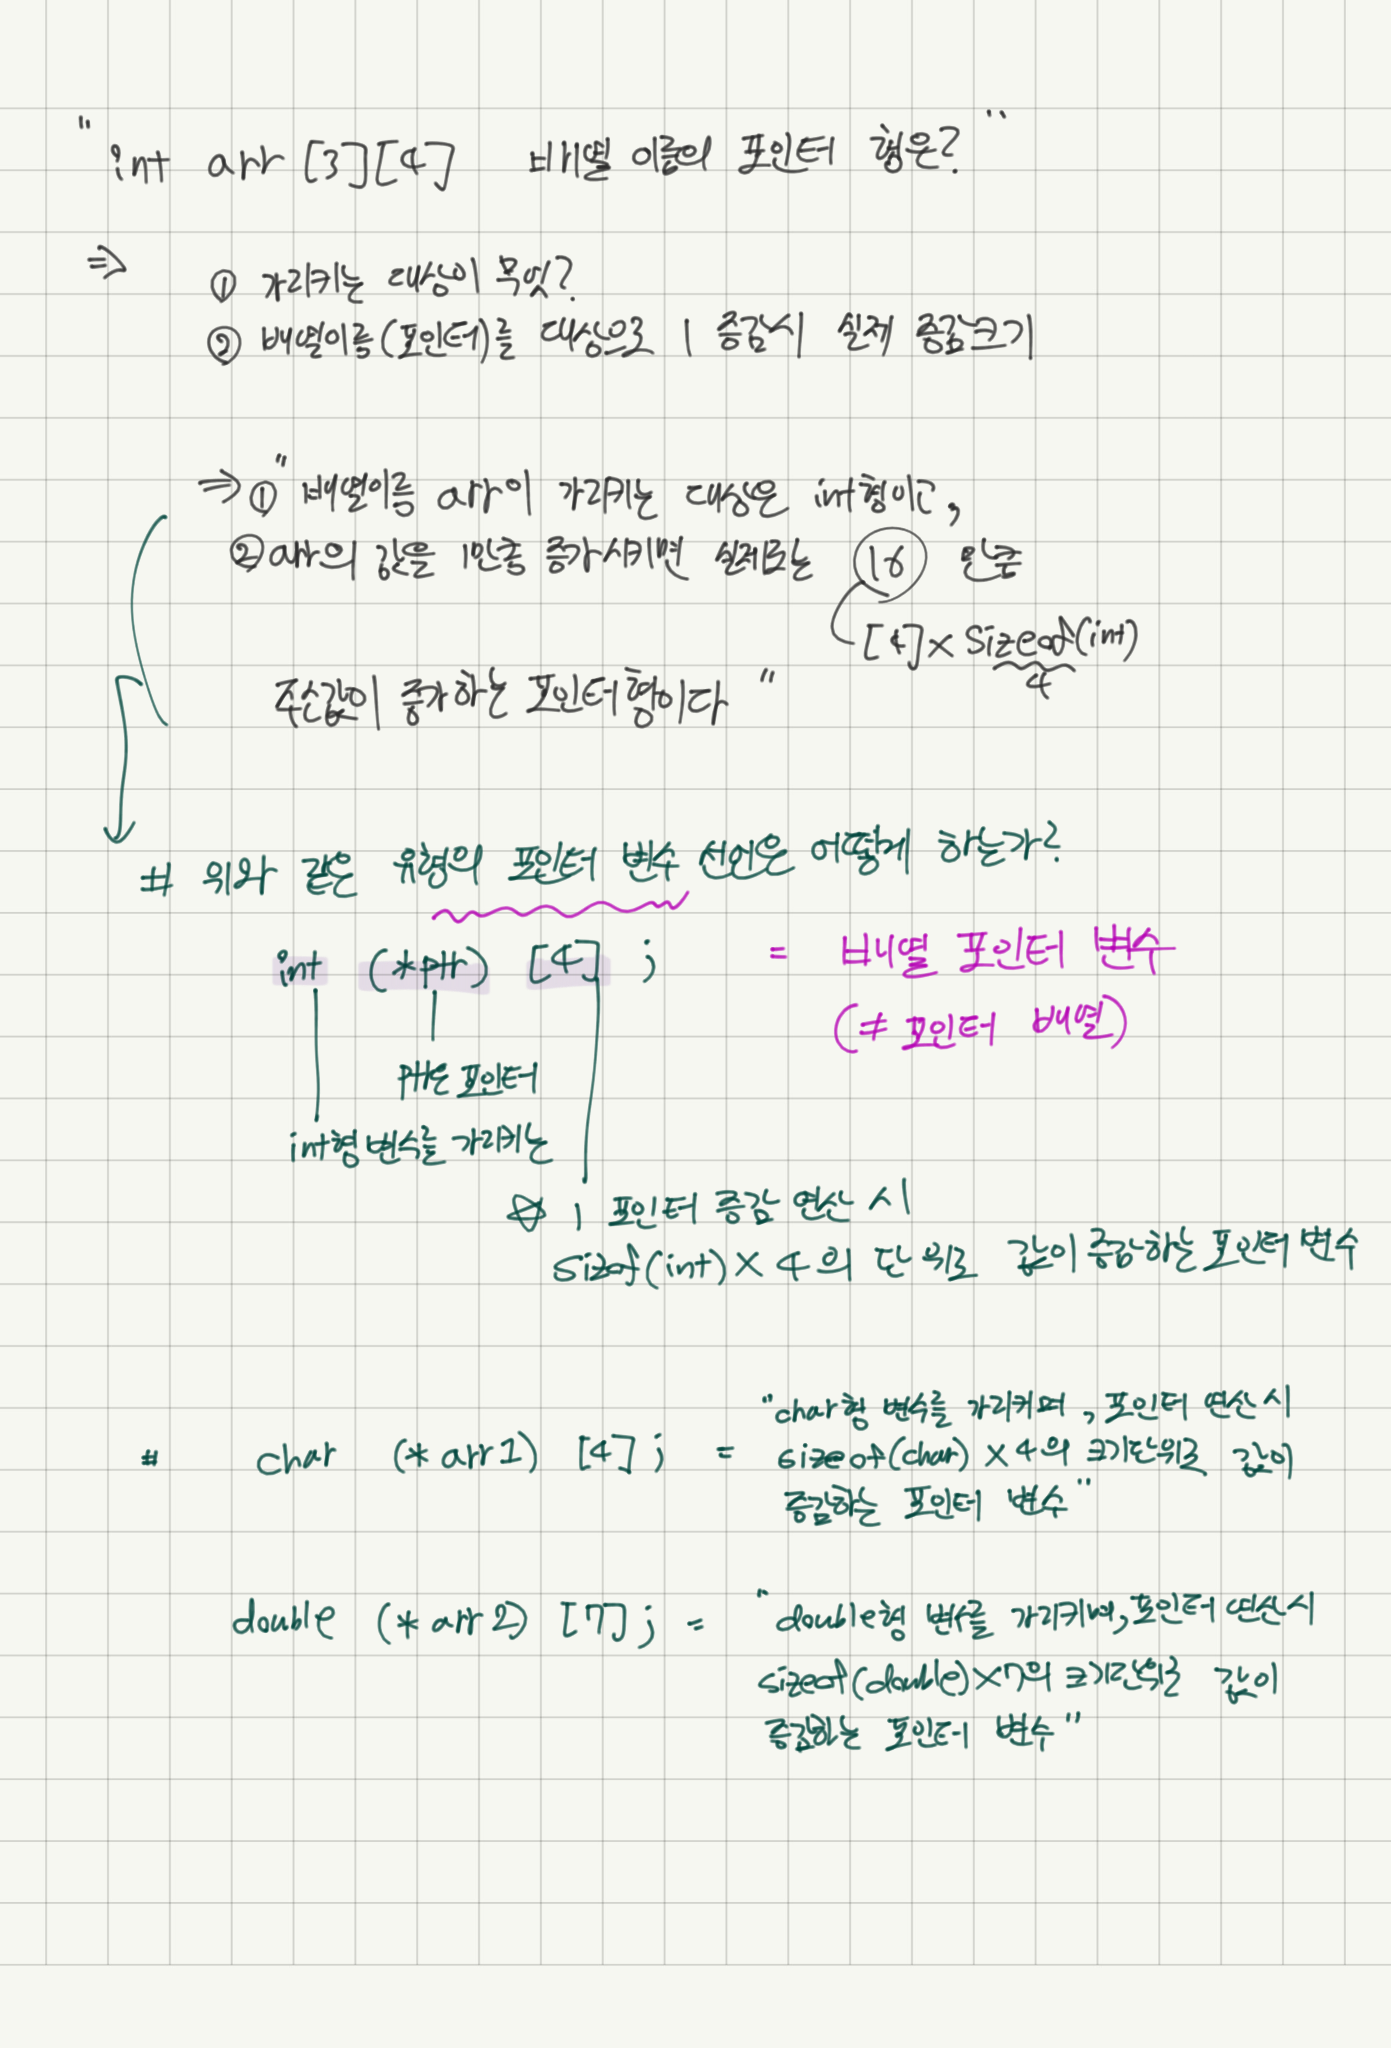 " int arr [3][4] 배열 이름의 포인터 형은? "
⇒ ① 가리키는 대상이 무엇?
② 배열이름(포인터)를 대상으로 1 증감시 실제 증감크기
⇒ ① " 배열이름 arr이 가리키는 대상은 int형이고,
② arr의 값을 1만큼 증가시키면 실제로는 16 만큼
[4] × sizeof(int)
4
주솟값이 증가하는 포인터형이다 "
# 위와 같은 유형의 포인터 변수 선언은 어떻게 하는가?
int (*ptr) [4] ; = 배열 포인터 변수
(≠ 포인터 배열)
ptr은 포인터
int형 변수를 가리키는
☆ 1 포인터 증감 연산 시
sizof(int) × 4 의 단위로 값이 증감하는 포인터 변수
"char형 변수를 가리키며, 포인터 연산시
# char (* arr1) [4] ; = sizeof(char) × 4의 크기단위로 값이
증감하는 포인터 변수"
double (* arr2) [7] ; = "double형 변수를 가리키며, 포인터 연산시
sizeof(double)×7의 크기단위로 값이
증감하는 포인터 변수"